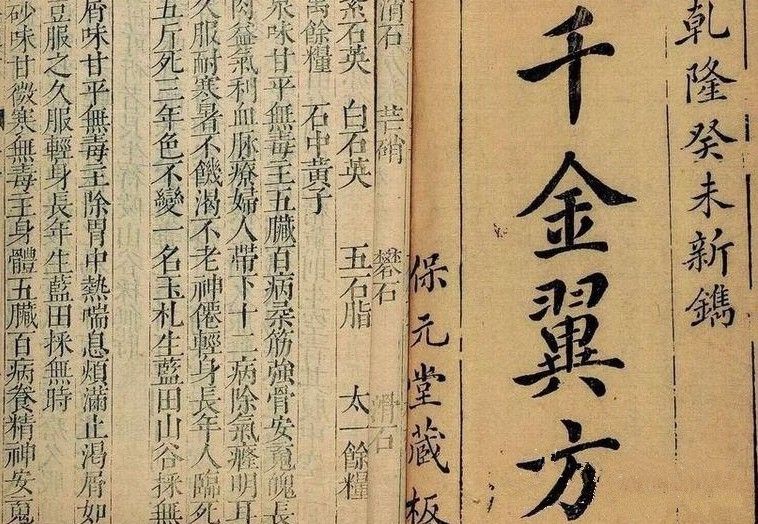 乾隆癸未新鐫
千金翼方
保元堂蔵板
石 芒硝 礬石 滑石
紫石英 白石英 五石脂 太一餘糧
禹餘糧 石中黄子
泉味甘平無毒主五臟百病柔筋強骨安䰟魄長
肉益氣利血脉療婦人帶下十二病除氣癃明耳
久服耐寒暑不饑渴不老神僊輕身長年人臨死
五斤死三年色不變一名玉札生藍田山谷採無
屑味甘平無毒主除胃中熱喘息煩滿止渴屑如
豆服之久服輕身長年生藍田採無時
砂味甘微寒無毒主身體五臟百病養精神安䰟